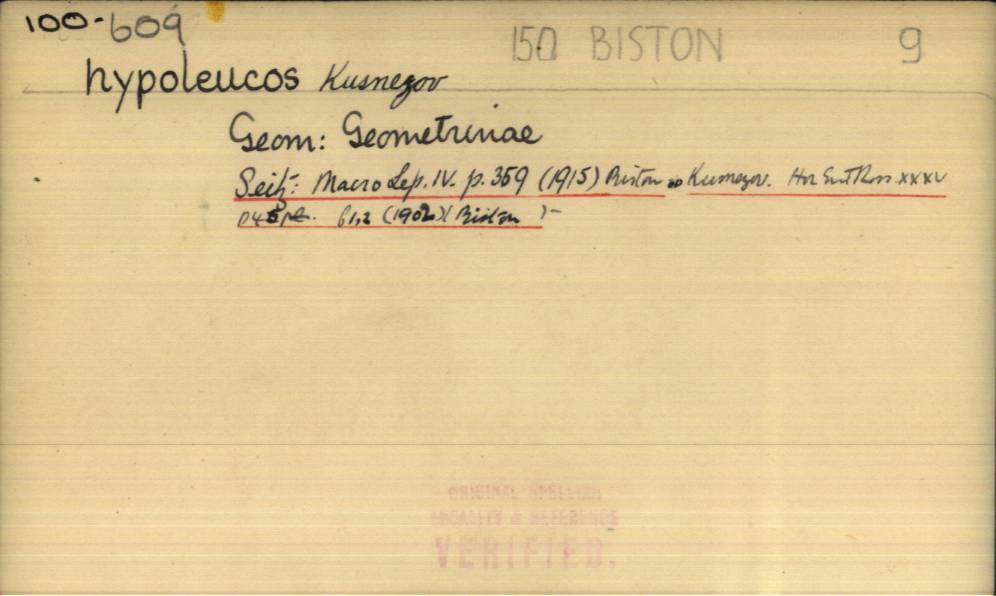 100-609
150 BISTON 9
hypoleucos Kusnezov
Geom: Geometrinae
Seitz: Macro Lep. IV. p. 359 (1915) Biston Kusnezov. Hor Ent Ross. XXXV
p 45 f 1,2 (1902) (Biston )-
ORIGINAL SPELLING
LOCALITY & REFERENCE
VERIFIED.